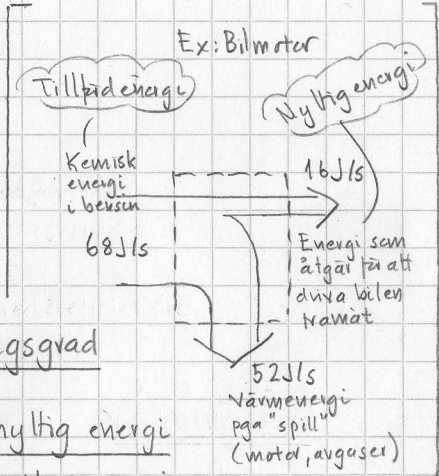 Ex: Bilmotor
Tillförd energi
Nyttig energi
Kemisk
energi
i bensin
68 J/s
16 J/s
Energi som
åtgår för att
driva bilen
framåt
gsgrad
52 J/s
Värmenergi
pga "spill"
(motor, avgaser)
nyttig energi